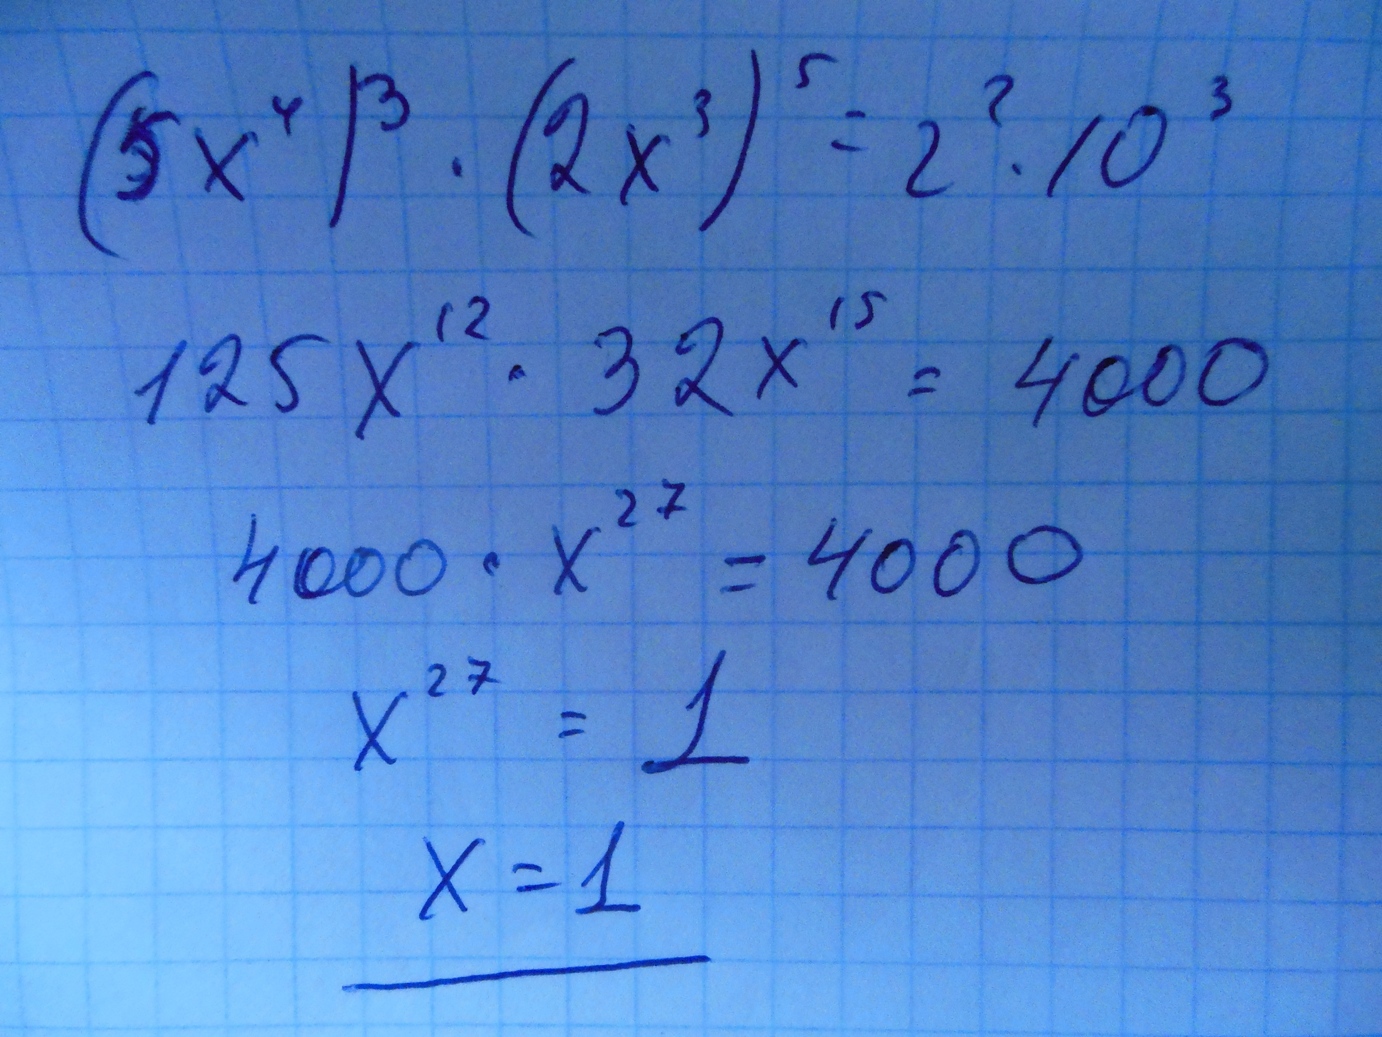 (5x⁴)³ · (2x³)⁵ = 2² · 10³
125x¹² · 32x¹⁵ = 4000
4000 · x²⁷ = 4000
x²⁷ = 1
x = 1